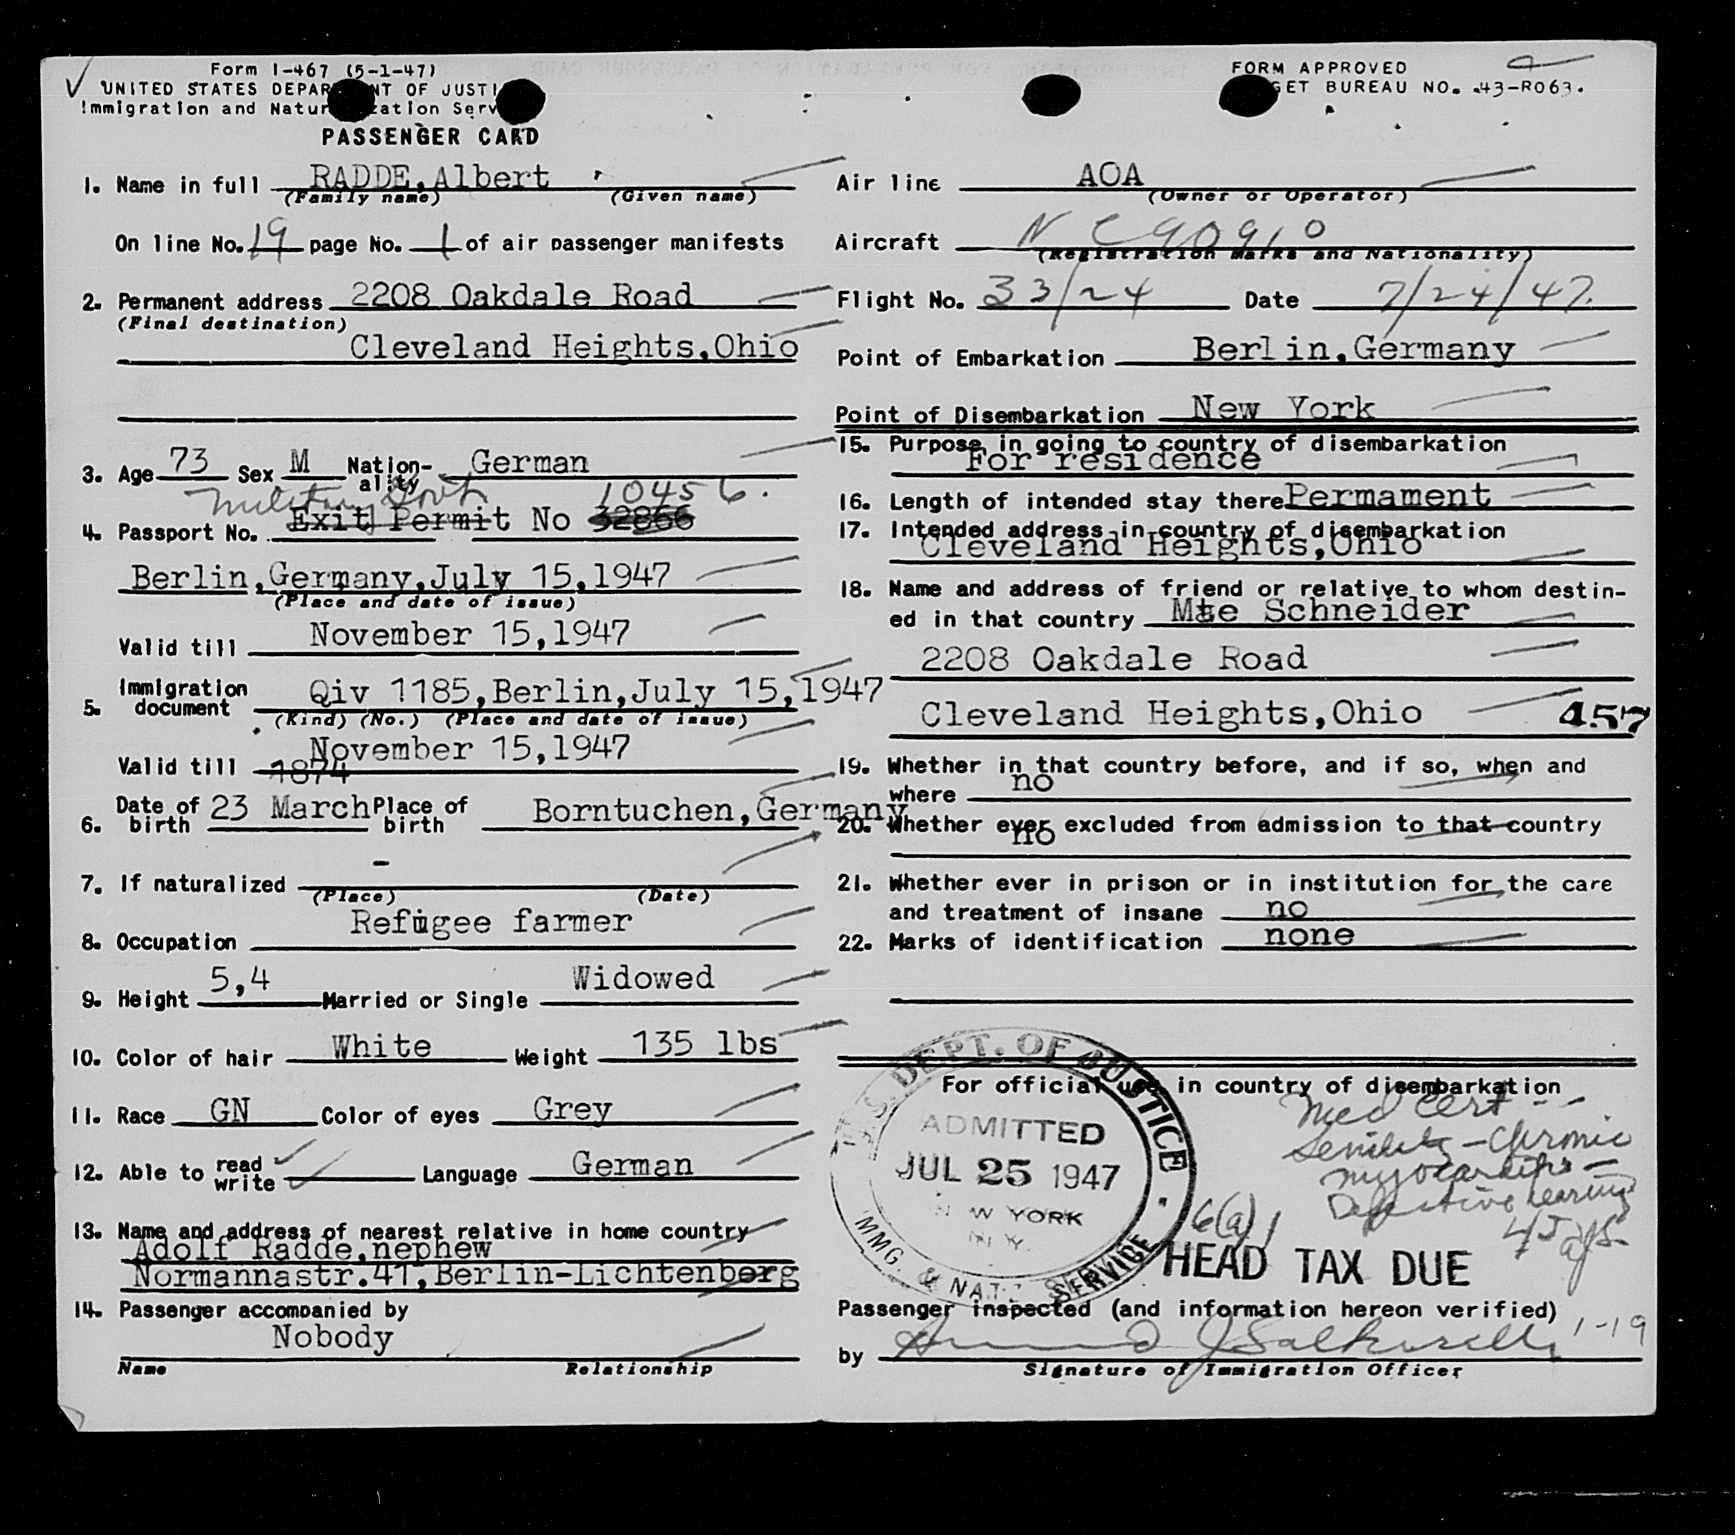 Form I-467 (5-1-47)
UNITED STATES DEPARTMENT OF JUSTICE
Immigration and Naturalization Service
PASSENGER CARD
1. Name in full RADDE, Albert
(Family name) (Given name)
On line No. 19 page No. 1 of air passenger manifests
2. Permanent address 2208 Oakdale Road
(Final destination)
Cleveland Heights, Ohio
3. Age 73 Sex M Nation-ality German
Military Govt 10456.
4. Passport No. Exit Permit No 32866
Berlin, Germany, July 15, 1947
(Place and date of issue)
Valid till November 15, 1947
5. Immigration document Qiv 1185, Berlin, July 15, 1947
(Kind) (No.) (Place and date of issue)
Valid till November 15, 1947
1874
6. Date of birth 23 March Place of birth Borntuchen, Germany
7. If naturalized -
(Place) (Date)
8. Occupation Refugee farmer
9. Height 5,4 Married or Single Widowed
10. Color of hair White Weight 135 lbs
11. Race GN Color of eyes Grey
12. Able to read write Language German
13. Name and address of nearest relative in home country
Adolf Radde, nephew
Normannastr. 41, Berlin-Lichtenberg
14. Passenger accompanied by
Nobody
Name Relationship
FORM APPROVED
BUDGET BUREAU NO. 43-R063.
Air line AOA
(Owner or Operator)
Aircraft NC 90910
(Registration marks and Nationality)
Flight No. 33/24 Date 7/24/47.
Point of Embarkation Berlin, Germany
Point of Disembarkation New York
15. Purpose in going to country of disembarkation
For residence
16. Length of intended stay there Permament
17. Intended address in country of disembarkation
Cleveland Heights, Ohio
18. Name and address of friend or relative to whom destin-
ed in that country Schneider
2208 Oakdale Road
Cleveland Heights, Ohio 457
19. Whether in that country before, and if so, when and
where no
20. Whether ever excluded from admission to that country
no
21. Whether ever in prison or in institution for the care
and treatment of insane no
22. Marks of identification none
For official use in country of disembarkation
U.S. DEPT. OF JUSTICE
ADMITTED
JUL 25 1947
NEW YORK
N.Y.
IMMG. & NATZ. SERVICE
Med cert --
Senility - Chronic
myocarditis -
Defective hearing
6(a)1
HEAD TAX DUE
Passenger inspected (and information hereon verified)
1-19
by
Signature of Immigration Officer